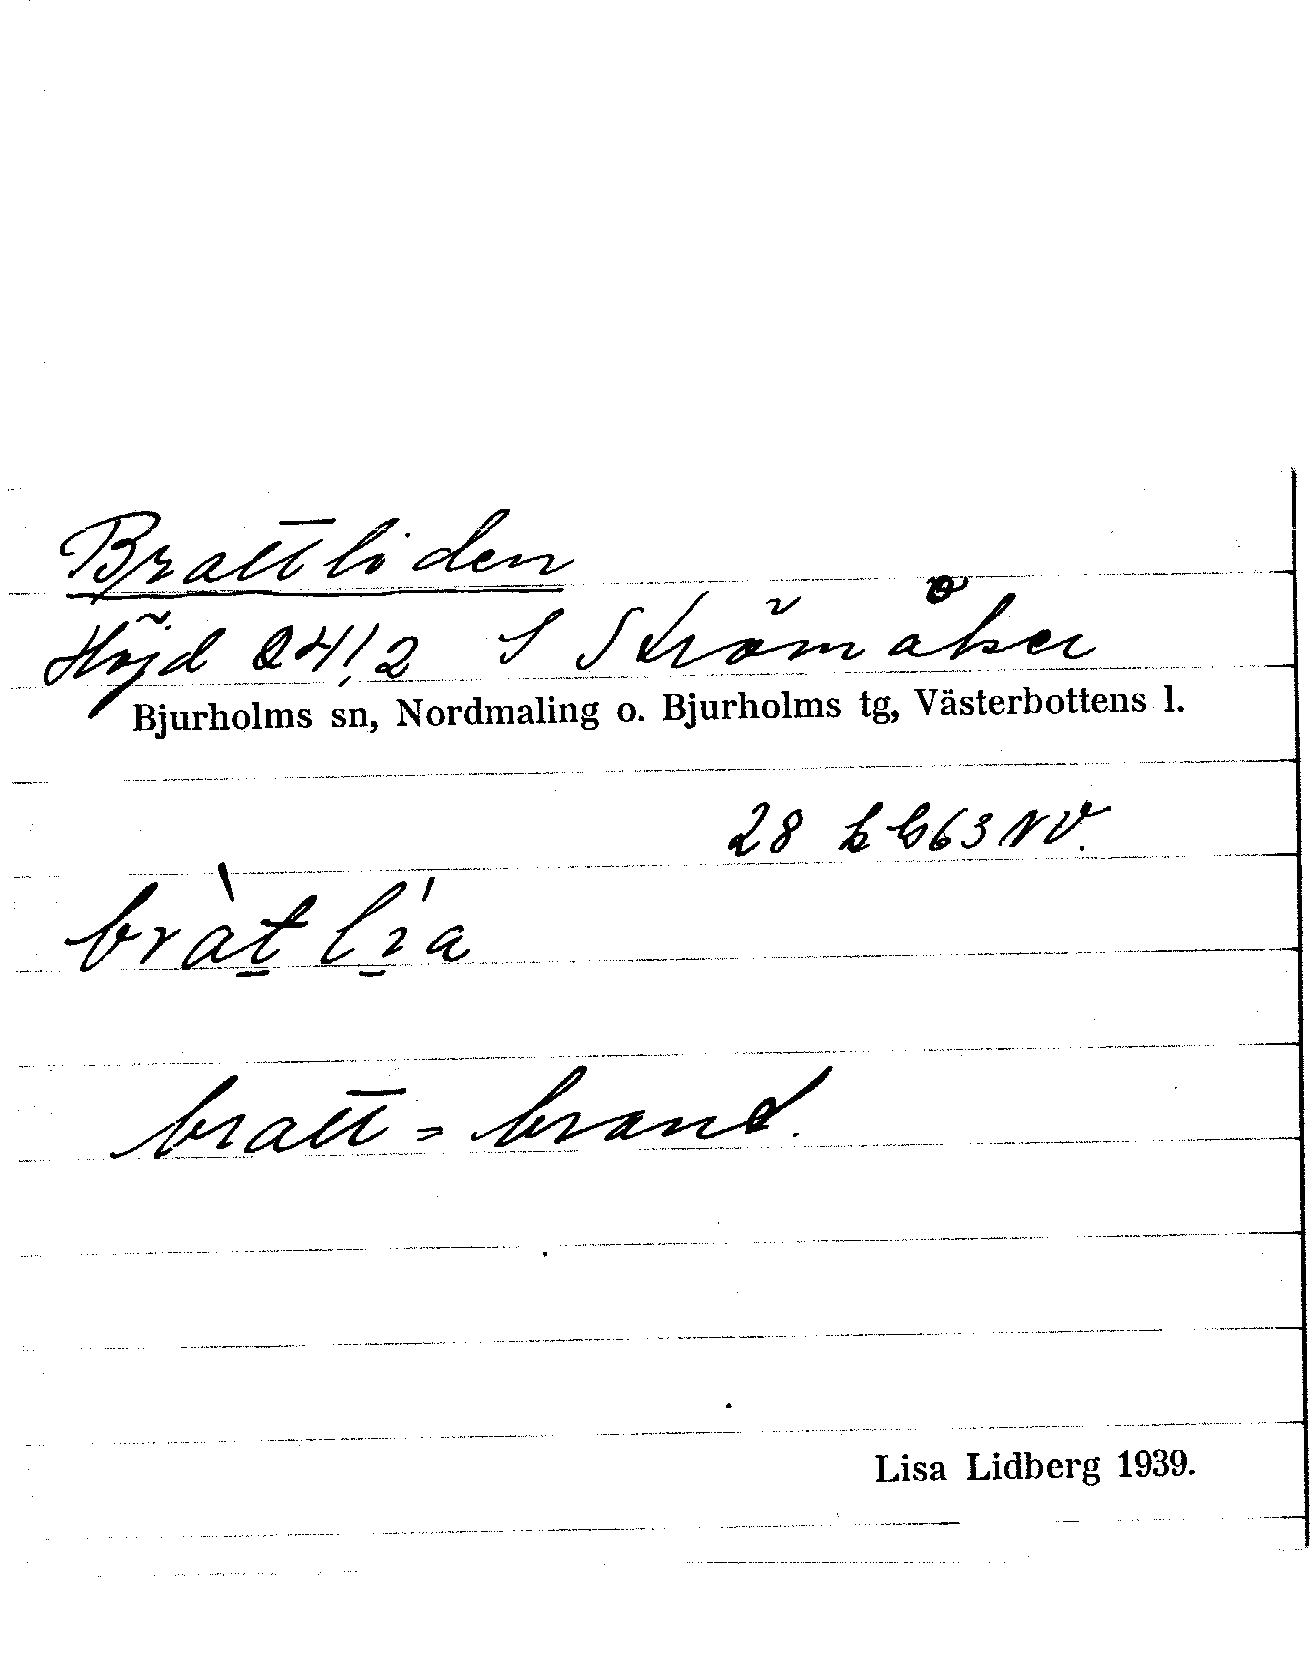 Brattliden
Höjd 241,2 S Strömåker
Bjurholms sn, Nordmaling o. Bjurholms tg, Västerbottens l.
28 63 NV.
bràt lía
bratt = brand.
Lisa Lidberg 1939.